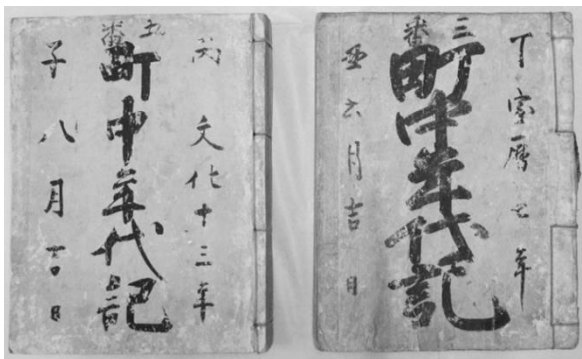 丁宝暦七年
三番
町中年代記
丑六月吉日
丙文化十三年
五番
町中年代記
子八月吉日